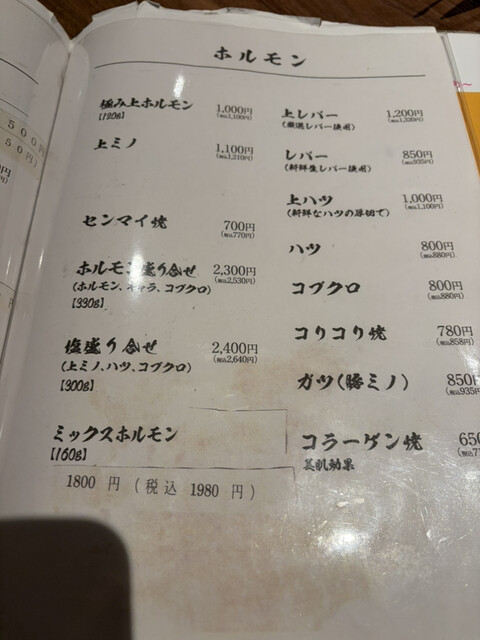 ホルモン
極み上ホルモン 1,000円
【120g】 (税込1,100円)
上ミノ 1,100円
(税込1,210円)
センマイ焼 700円
(税込770円)
ホルモン盛り合せ 2,300円
(ホルモン、ギャラ、コブクロ) (税込2,530円)
【330g】
塩盛り合せ 2,400円
(上ミノ、ハツ、コブクロ) (税込2,640円)
【300g】
ミックスホルモン
【160g】
1800 円 (税込 1980 円)
上レバー 1,200円
(厳選レバー使用) (税込1,320円)
レバー 850円
(新鮮生レバー使用) (税込935円)
上ハツ 1,000円
(新鮮なハツの厚切で) (税込1,100円)
ハツ 800円
(税込880円)
コブクロ 800円
(税込880円)
コリコリ焼 780円
(税込858円)
ガツ(豚ミノ) 850円
(税込935円
コラーゲン焼 650
美肌効果